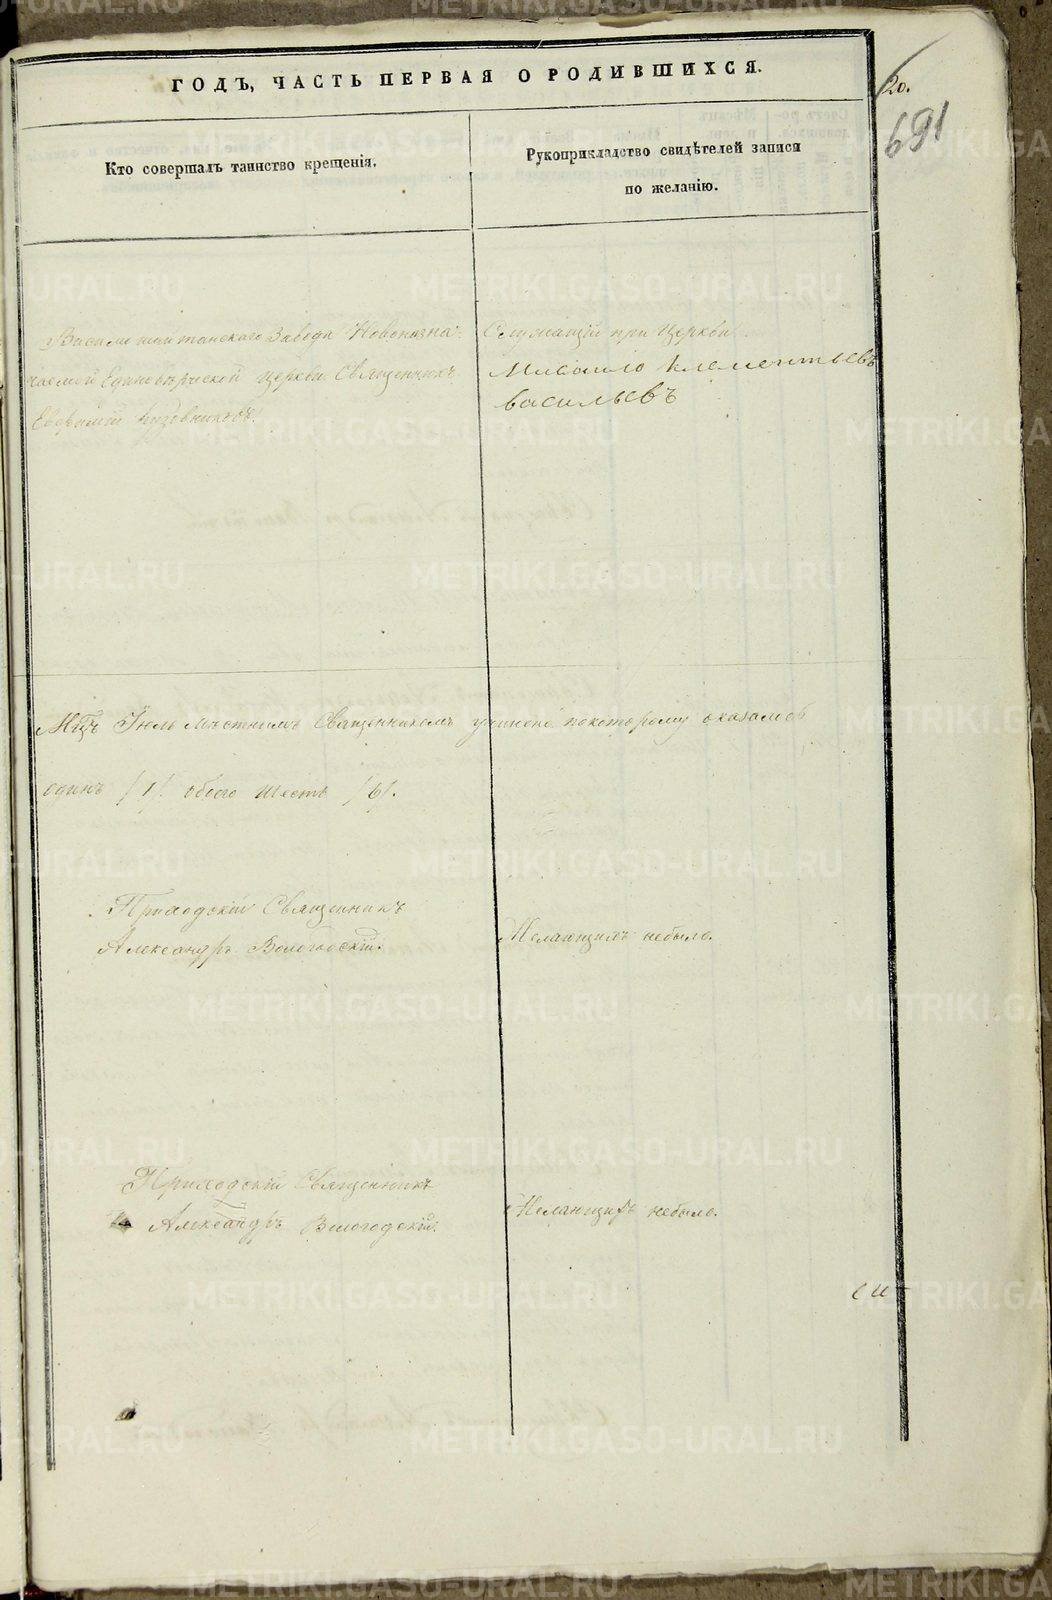 ГОДЪ, ЧАСТЬ ПЕРВАЯ О РОДИВШИХСЯ.
20.
691
Кто совершалъ таинство крещенія.
Рукоприкладство свидѣтелей записи
по желанію.
Висимошайтанскаго Завода Новоназна-
чаемой Единовѣрческой Церкви Священникъ
Евфимій
Служащій при Церкви
Михаило Клементьевъ
васильевъ
Мцъ Іюль мѣстнымъ Священникомъ учинено покоторому оказалось
одинъ /1/. обоего шесть /6/.
Приходскій Священникъ
Александръ Вологодскій.
Желающихъ небыло.
Приходскій Священникъ
Александръ Вологодскій.
Желающихъ небыло.
METRIKI.GASO-URAL.RU